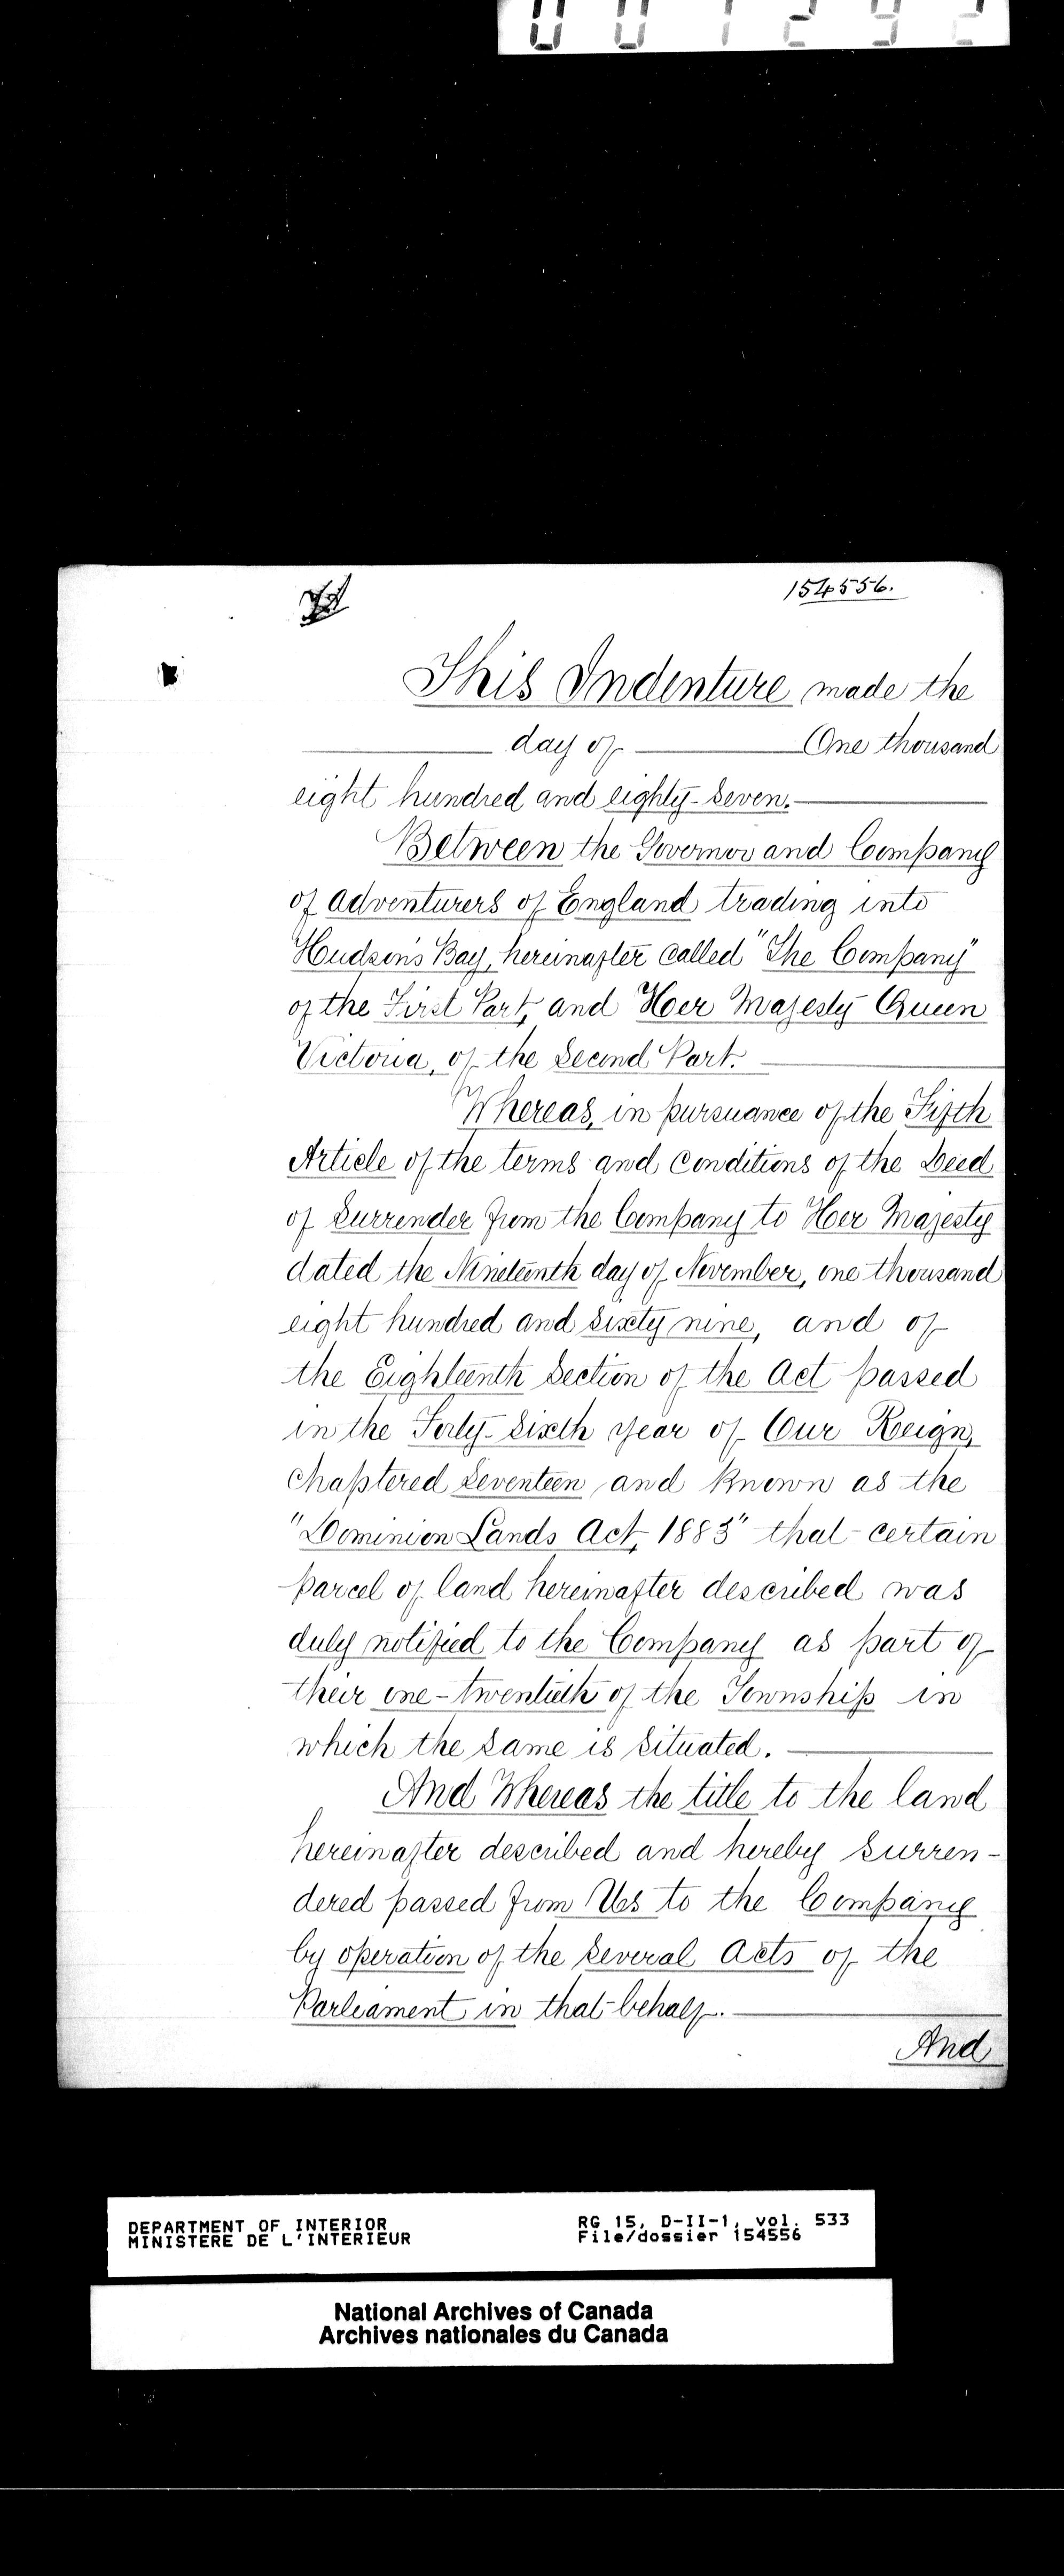 154556.
This Indenture made the
day of One thousand
eight hundred and eighty-seven.
Between the Governor and Company
of Adventurers of England trading into
Hudson's Bay, hereinafter called "The Company"
of the First Part, and Her Majesty Queen
Victoria, of the Second Part.
Whereas, in pursuance of the Fifth
Article of the terms and conditions of the Deed
of Surrender from the Company to Her Majesty
dated the Nineteenth day of November, one thousand
eight hundred and sixty nine, and of
the Eighteenth Section of the Act passed
in the Forty-Sixth year of Our Reign,
chaptered Seventeen and known as the
"Dominion Lands Act, 1883" that certain
parcel of land hereinafter described was
duly notified to the Company as part of
their one-twentieth of the Township in
which the same is situated.
And Whereas the title to the land
hereinafter described and hereby surren-
dered passed from Us to the Company
by operation of the several Acts of the
Parliament in that behalf.
And
DEPARTMENT OF INTERIOR RG 15, D-II-1, vol. 533
MINISTERE DE L'INTERIEUR File/dossier 154556
National Archives of Canada
Archives nationales du Canada